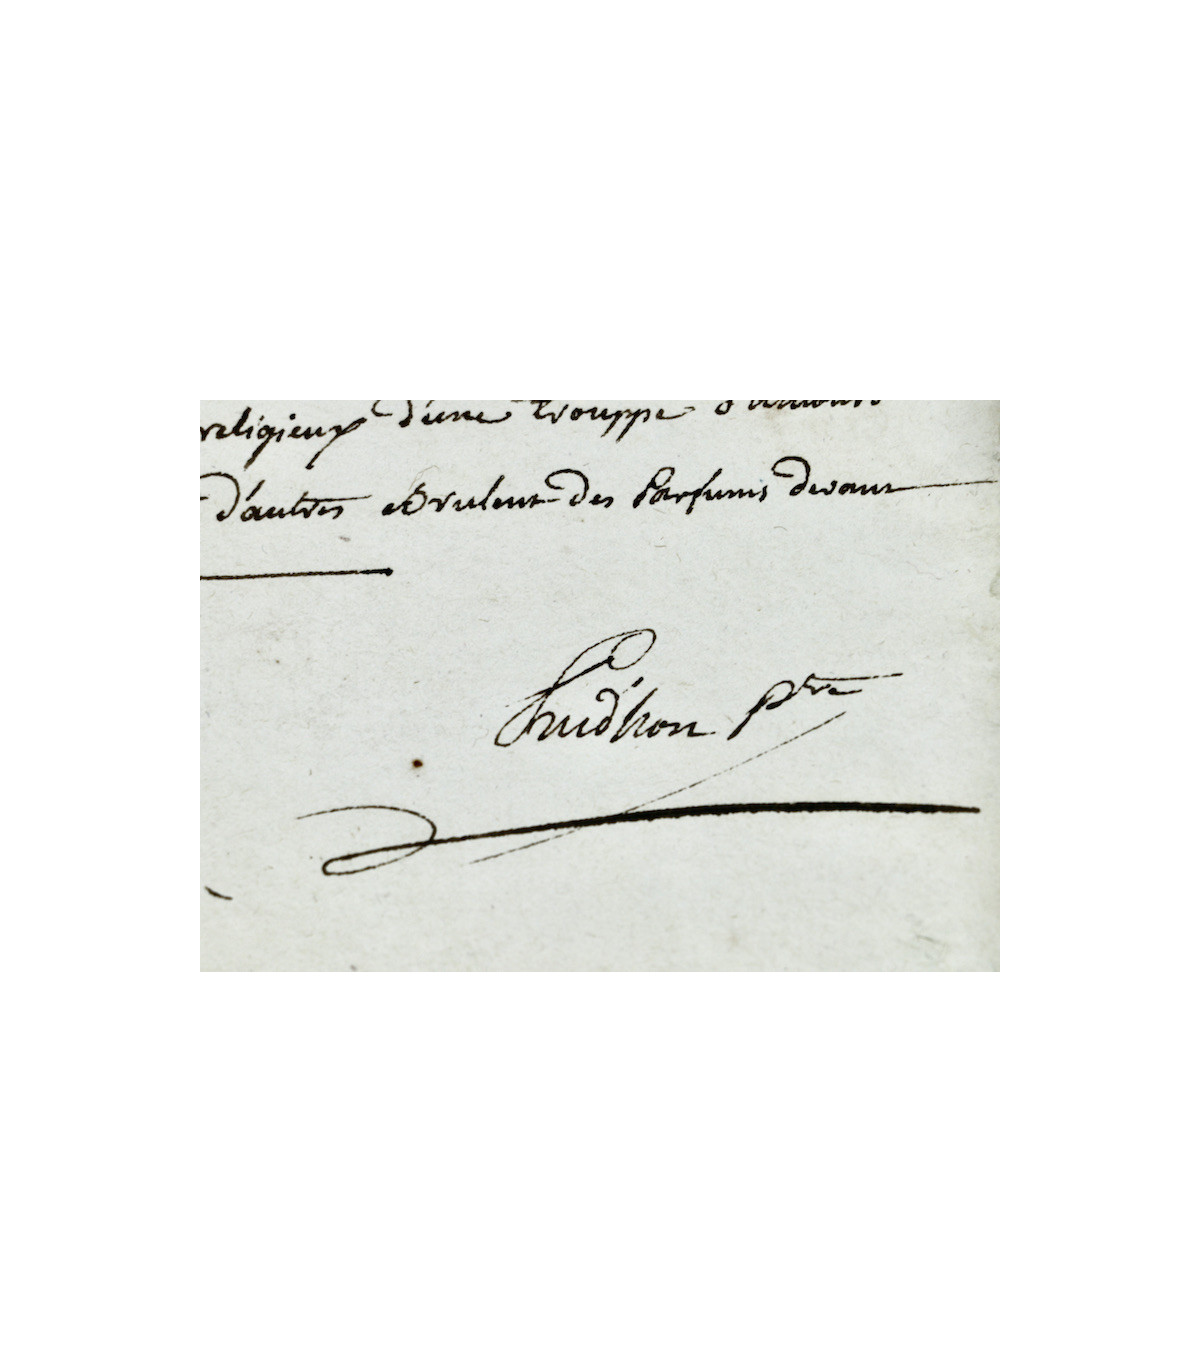 religieux d'une trouppe d'amours
d'autres Brulent des Parfums devant
Prudhon ptre